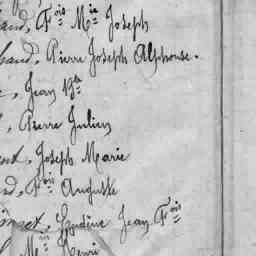 aud, F^ois M^ie Joseph
haud, Pierre Joseph Alphonse.
, Jean B^te
, Pierre Julien
, Joseph Marie
d, F^ois Auguste
Jean F^ois
M^ie Henri